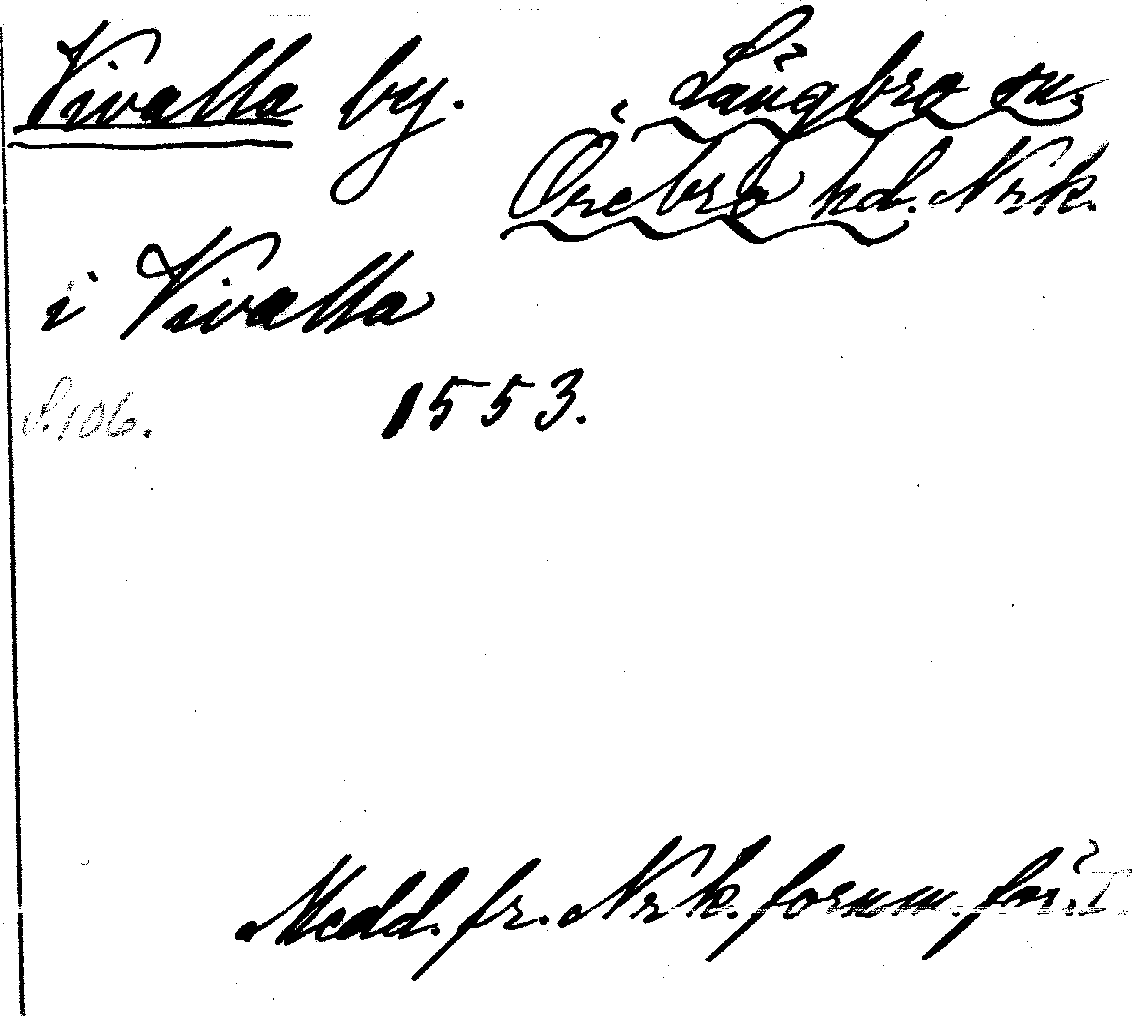 Vivalla by. Längbro sn.
Örebro hd. Nrk.
i Vivalla
S. 106. 1553.
Medd. fr. Nrk. fornm. för. I.